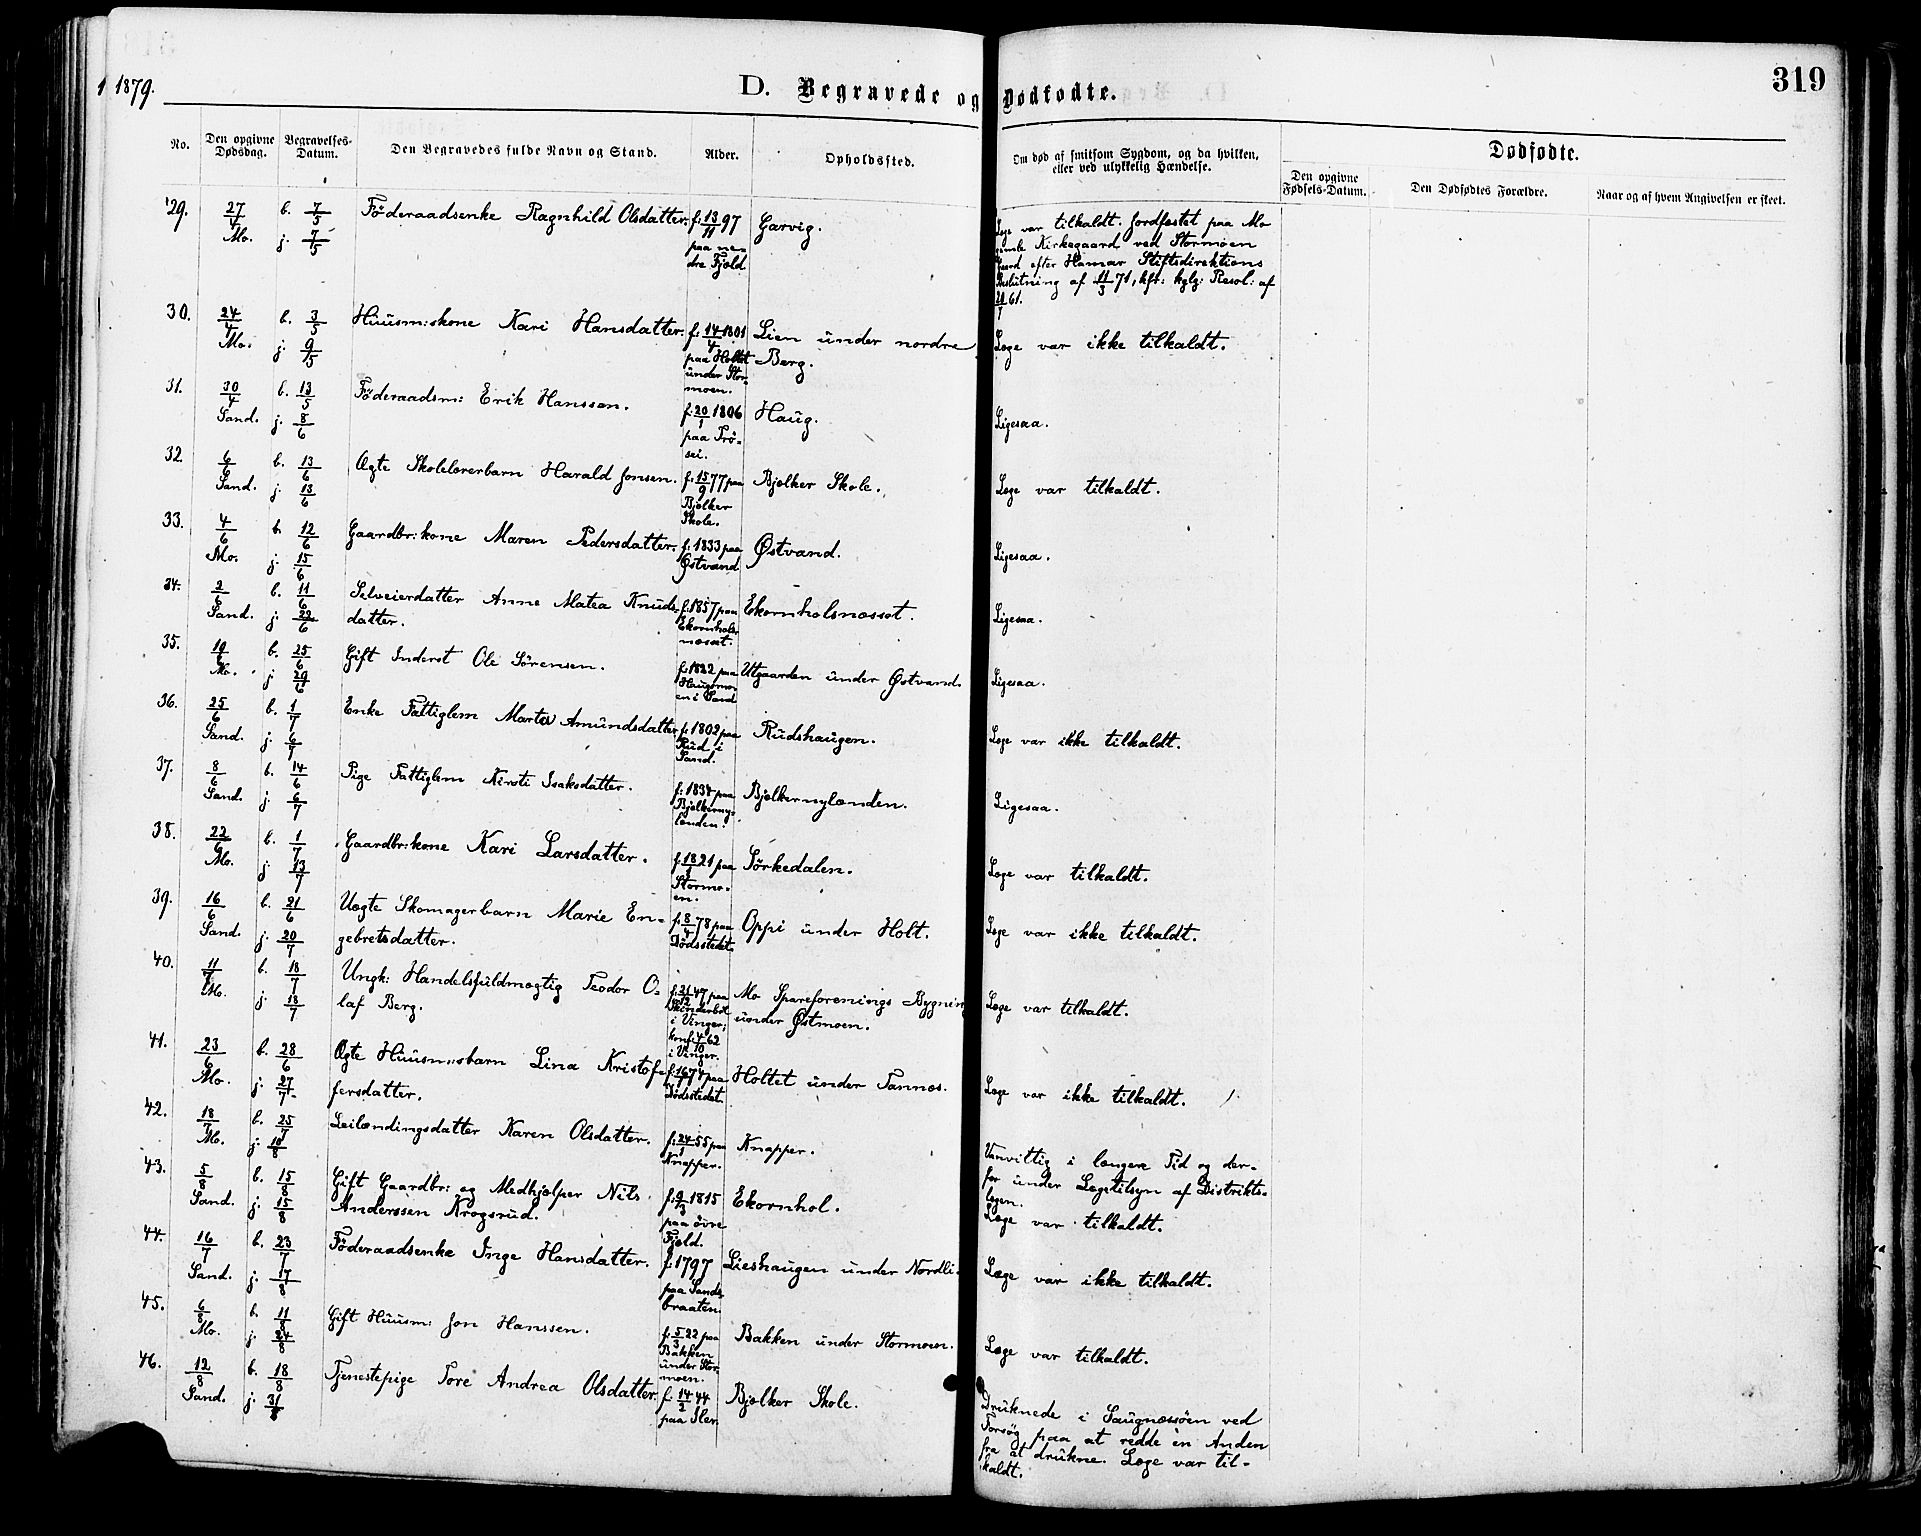 1879.
D. Begravede og Dødfødte.
319
No.
Den opgivne Dødsdag.
Begravelses-Datum.
Den Begravedes fulde Navn og Stand.
Alder.
Opholdssted.
Om død af smitsom Sygdom, og da hvilken, eller ved ulykkelig Hændelse.
Dødfødte.
Den opgivne Fødsels-Datum.
Den Dødfødtes Forældre.
Naar og af hvem Angivelsen er skeet.
29. 27/4 Mo. b. 7/5 j. 7/5 Föderaadsenke Ragnhild Olsdatter. f. 13/11 97 paa nedre Fjeld Garvig.
Læge var tilkaldt. Jordfæstet paa Mo
gamle Kirkegaard ved Stormoen
Gaard efter Hamar Stiftsdirektions
Beslutning af 11/3 71, kfr: kglg: Resol: af
61.
30. 24/4 Mo. b. 3/5 j. 9/5 Huusm:skone Kari Hansdatter. f. 14/4 1801 paa Holtet under Stormoen. Lien under nordre Berg. Læge var ikke tilkaldt.
31. 30/4 Sand. b. 13/5 j. 8/6 Föderaadsm: Erik Hanssen. f. 20/1 1806 paa Frösei. Haug. Ligesaa.
32. 6/6 Sand. b. 13/6 j. 13/6 Ægte Skolelærerbarn Harald Jonsen. f. 15/9 77 paa Bjølker Skole. Bjølker Skole. Læge var tilkaldt.
33. 4/6 Mo. b. 12/6 j. 15/6 Gaardbr:kone Maren Pedersdatter. f. 1833 paa Østvand Østvand. Ligesaa.
34. 2/6 Sand. b. 11/6 j. 22/6 Selveierdatter Anne Matea Knudsdatter. f. 1857 paa Ekornholsnæsset. Ekornholsnæsset. Ligesaa.
35. 19/6 Mo. b. 25/6 j. 29/6 Gift Inderst Ole Sörensen. f. 1822 paa Haugsmoen i Sand Utgaarden under Østvand. Ligesaa.
36. 25/6 Sand. b. 1/7 j. 6/7 Enke Fattiglem Marte Amundsdatter f. 1802 paa Rud i Sand. Rudshaugen. Læge var ikke tilkaldt.
37. 8/6 Sand. b. 14/6 j. 6/7 Pige Fattiglem Kirsti Isaksdatter. f. 1834 paa Bjølkernylænden. Bjølkernylænden. Ligesaa.
38. 22/6 Mo. b. 1/7 j. 13/7 Gaardbr:kone Kari Larsdatter. f. 1821 paa Stormoen. Sörkedalen. Læge var tilkaldt.
39. 16/6 Sand. b. 21/6 j. 20/7 Uægte Skomagerbarn Marie Engebretsdatter. f. 8/4 78 paa Dödsstedet. Oppi under Holt. Læge var ikke tilkaldt.
40. 11/7 Mo. b. 18/7 j. 18/7 Ungk: Handelsfuldmægtig Teodor Olaf Berg. f. 21/12 47 paa i Vinger; konf. 4/10 62 i Vinger. Mo Spareforenings Bygning under Østmoen. Læge var tilkaldt.
41. 23/6 Mo. b. 28/6 j. 27/7 Ægte Huusm:sbarn Lina Kristoffersdatter. f. paa Dödsstedet. Holtet under Tannæs. Læge var ikke tilkaldt.
42. 18/7 Mo. b. 25/7 j. 10/8 Leilændingsdatter Karen Olsdatter. f. 24/1 55 paa Knapper. Knapper.
Vanvittig i længere Tid og der-
for under Lægetilsyn af Distrikts-
lægen.
43. 5/8 Sand. b. 15/8 j. 15/8 Gift Gaardbr: og Medhjælper Nils Anderssen Krogsrud. f. 9/3 1815 paa övre Fjeld. Ekornhol. Læge var tilkaldt.
44. 16/7 Sand. b. 23/7 j. 17/8 Föderaadsenke Inge Hansdatter. f. 1797 paa Sandsbraaten. Lieshaugen under Nordli. Læge var ikke tilkaldt.
45. 6/8 Mo. b. 11/8 j. 24/8 Gift Huusm: Jon Hanssen. f. 5/3 22 paa Bakken under Stormoen. Bakken under Stormoen. Læge var tilkaldt.
46. 12/8 Sand. b. 18/8 j. 31/8 Tjenestepige Tore Andrea Olsdatter f. 14/2 44 paa Sler. Bjølker Skole.
Druknede i Saugnæssöen ved
Forsög paa at redde en Anden
fra at drukne. Læge var til-
kaldt.